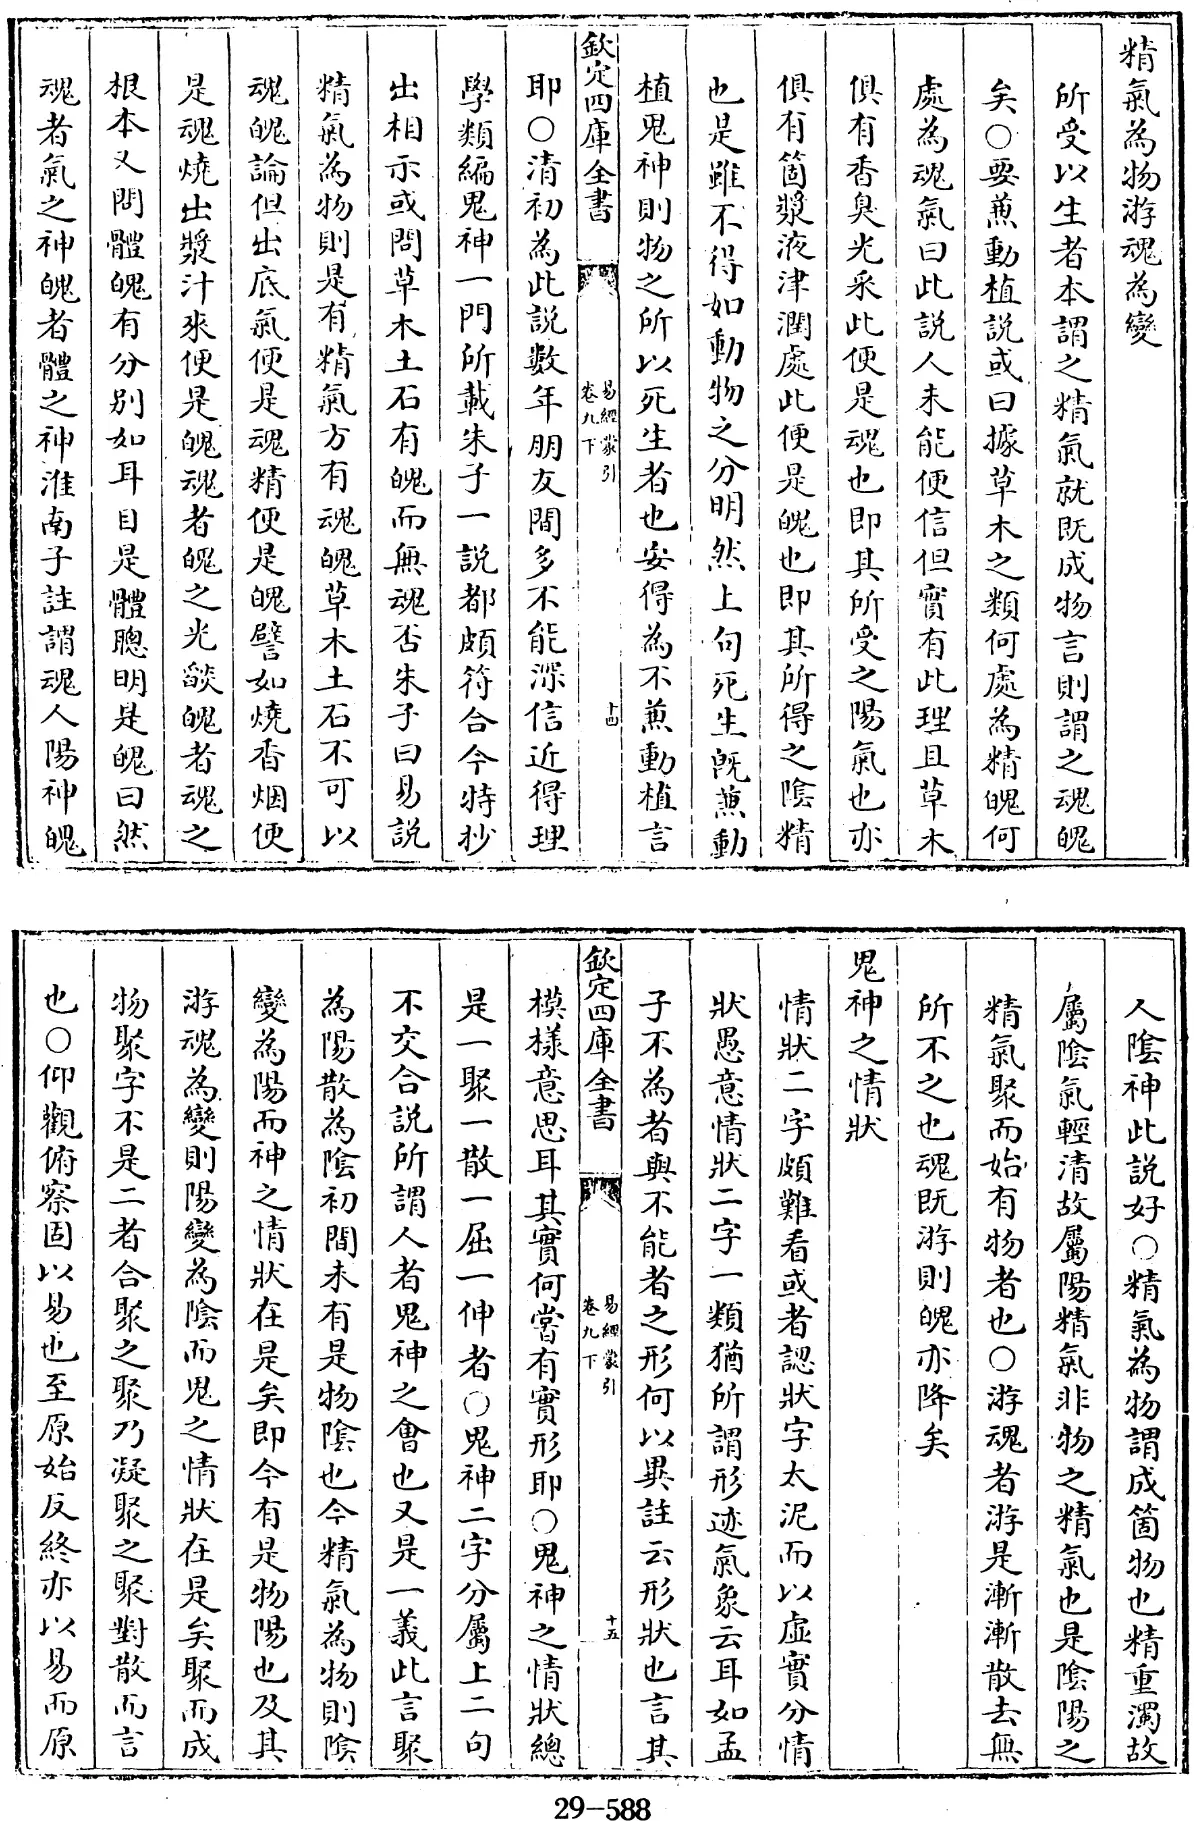 精氣為物游魂為變
所受以生者本謂之精氣就既成物言則謂之魂魄
矣○要兼動植説或曰據草木之類何處為精魄何
處為魂氣曰此説人未能便信但實有此理且草木
俱有香臭光采此便是魂也即其所受之陽氣也亦
俱有箇漿液津潤處此便是魄也即其所得之隂精
也是雖不得如動物之分明然上句死生既兼動
植鬼神則物之所以死生者也安得為不兼動植言
欽定四庫全書
易經蒙引
卷九下
十四
耶○清初為此説數年朋友間多不能深信近得理
學類編鬼神一門所載朱子一説都頗符合今特抄
出相示或問草木土石有魄而無魂否朱子曰易説
精氣為物則是有精氣方有魂魄草木土石不可以
魂魄論但出底氣便是魂精便是魄譬如燒香烟便
是魂燒出漿汁來便是魄魂者魄之光燄魄者魂之
根本又問體魄有分别如耳目是體聰明是魄曰然
魂者氣之神魄者體之神淮南子註謂魂人陽神魄
人隂神此説好○精氣為物謂成箇物也精重濁故
屬隂氣輕清故屬陽精氣非物之精氣也是隂陽之
精氣聚而始有物者也○游魂者游是漸漸散去無
所不之也魂既游則魄亦降矣
鬼神之情狀
情狀二字頗難看或者認狀字太泥而以虛實分情
狀愚意情狀二字一類猶所謂形迹氣象云耳如孟
子不為者與不能者之形何以異註云形狀也言其
欽定四庫全書
易經蒙引
卷九下
十五
模様意思耳其實何嘗有實形耶○鬼神之情狀總
是一聚一散一屈一伸者○鬼神二字分屬上二句
不交合説所謂人者鬼神之會也又是一義此言聚
為陽散為隂初間未有是物隂也今精氣為物則隂
變為陽而神之情狀在是矣即今有是物陽也及其
游魂為變則陽變為隂而鬼之情狀在是矣聚而成
物聚字不是二者合聚之聚乃凝聚之聚對散而言
也○仰觀俯察固以易也至原始反終亦以易而原
29-588